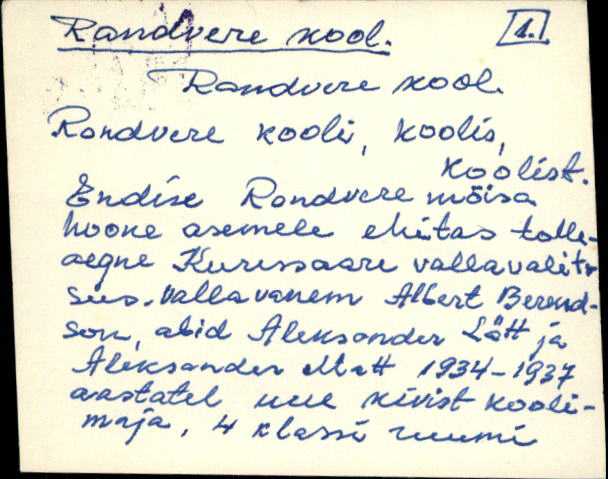 Randvere kool.
1.
Randvere kool.
Randvere kooli, koolis,
koolist.
Endise Randvere mõisa
hoone asemele ehitas tolle-
aegne Kuressaare vallavalit-
sus. Vallavanem Albert Berend-
son, abid Aleksander Lätt ja
Aleksander Matt 1934-1937
aastatel uue kivist kooli-
maja, 4 klassi ruumi